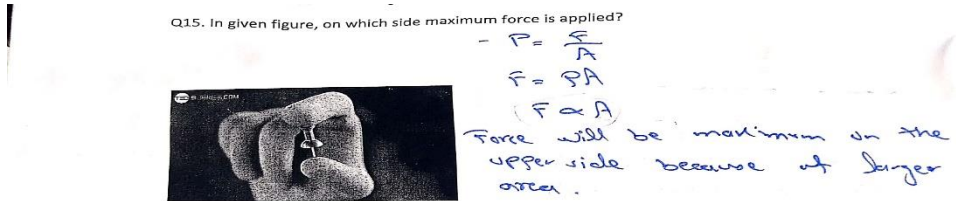 Q15. In given figure, on which side maximum force is applied?
- P = F/A
F = PA
F ∝ A
Force will be maximum on the
upper side because of larger
area.